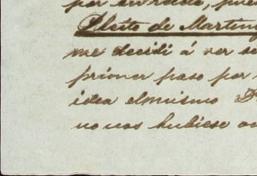 por
Pleito de Martin
me decidi á ver se
primer paso por
idea el mismo D
no nos hubiese